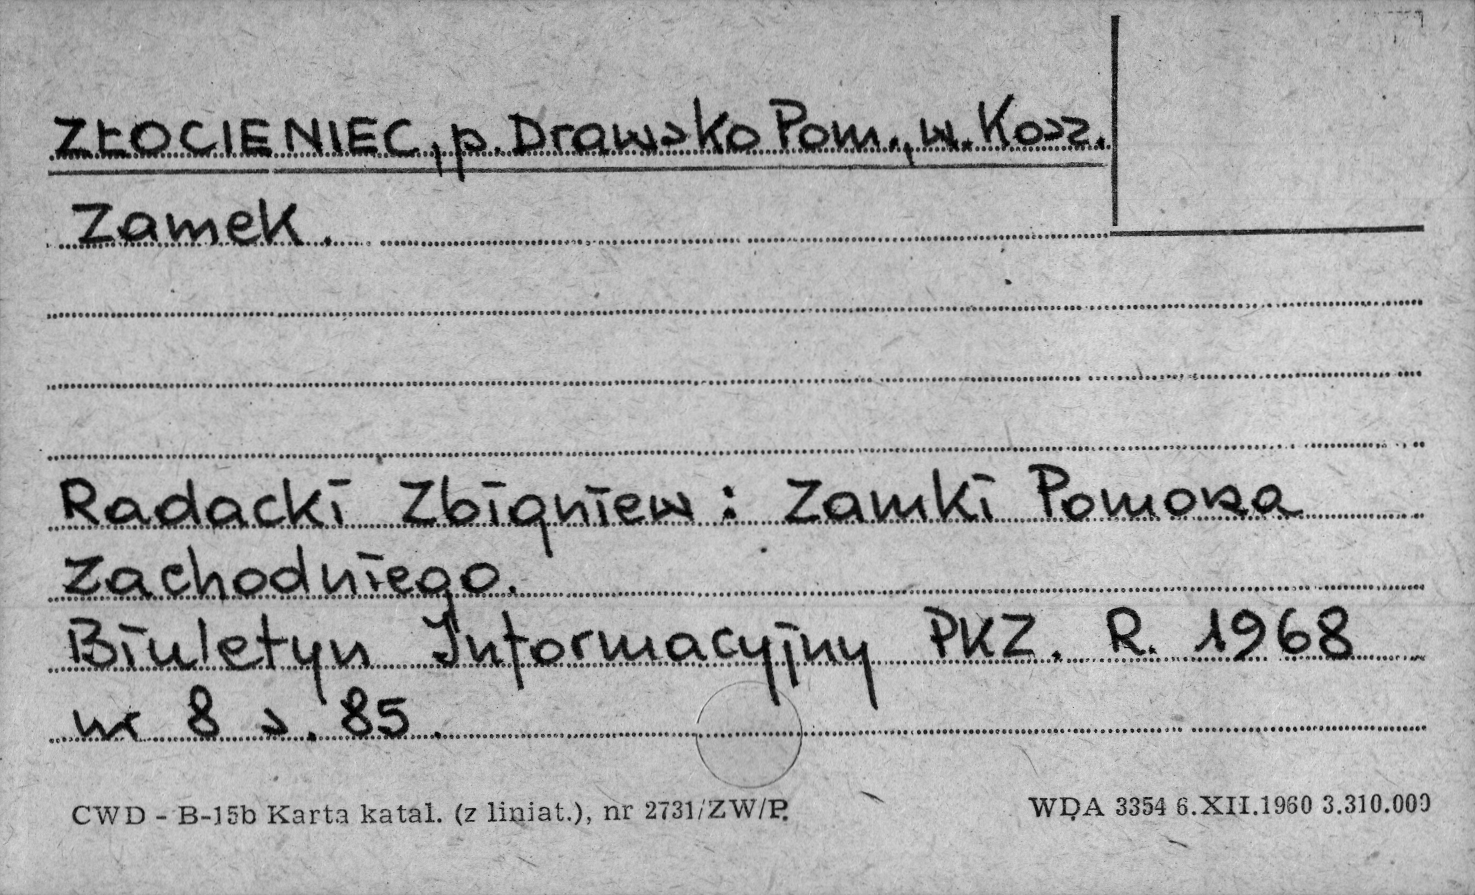 ZŁOCIENIEC, p. Drawsko Pom., w. Kosz.
Zamek.
Radacki Zbigniew: Zamki Pomorza
Zachodniego.
Biuletyn Informacyjny PKZ. R. 1968
nr 8 s. 85.
CWD - B-15b Karta katal. (z liniat.), nr 2731/ZW/P. WDA 3354 6.XII.1960 3.310.000